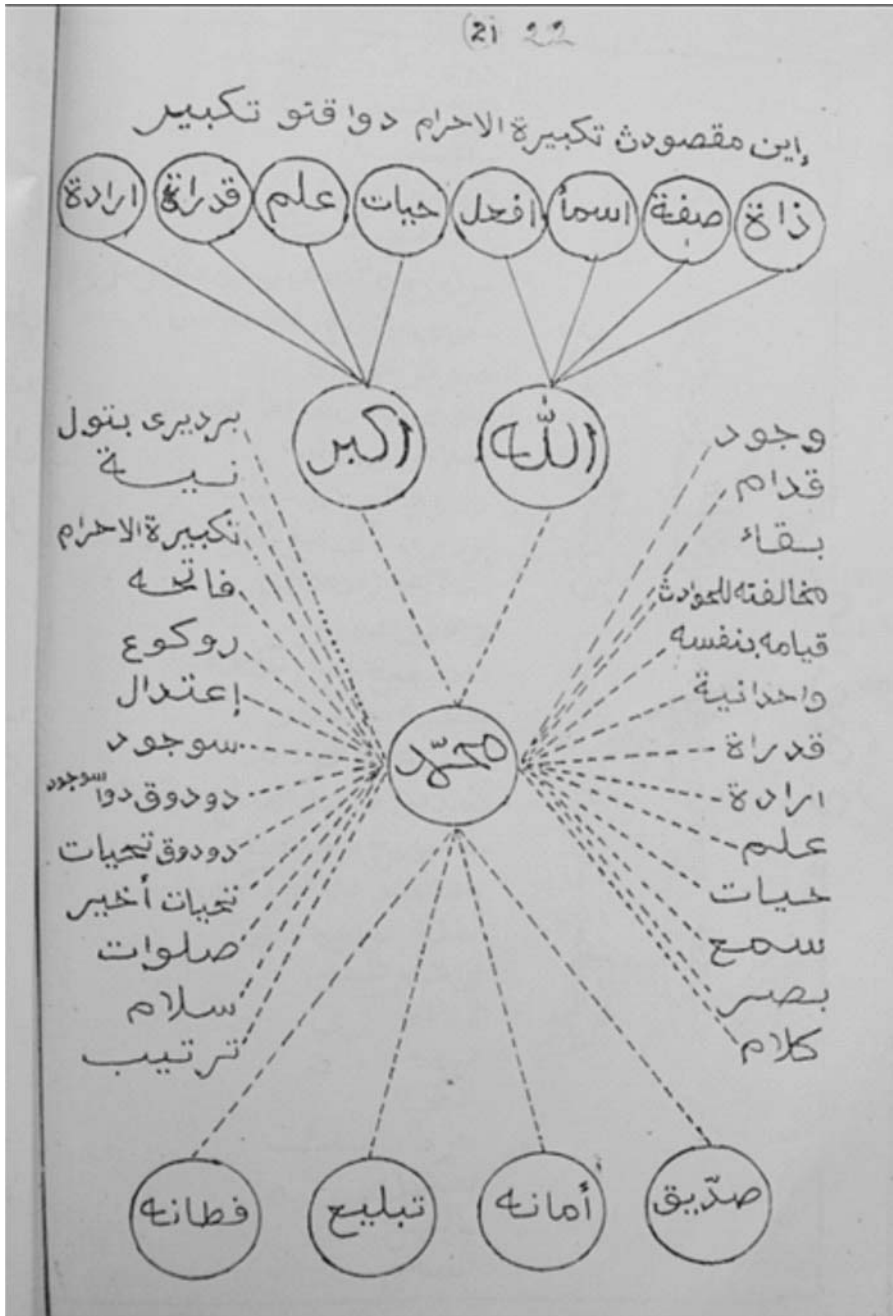 (21 22
إين مقصودث تكبيرة الاحرام دوا قتو تكبير
ذاة صفة اسمأ افعل حيات علم قدراة ارادة
الله اكبر
وجود
قدام
بقاء
مخالفته للحوادث
قيامه بنفسه
واحدانية
قدراة
ارادة
علم
حيات
سمع
بصر
كلام
برديرى بتول
نية
تكبيرة الاحرام
فاتحه
روكوع
إعتدال
سوجود
دودوق دوا سوجود
دودوق تحيات
تحيات أخير
صلوات
سلام
ترتيب
محمّد
صدّيق أمانه تبليع فطانه